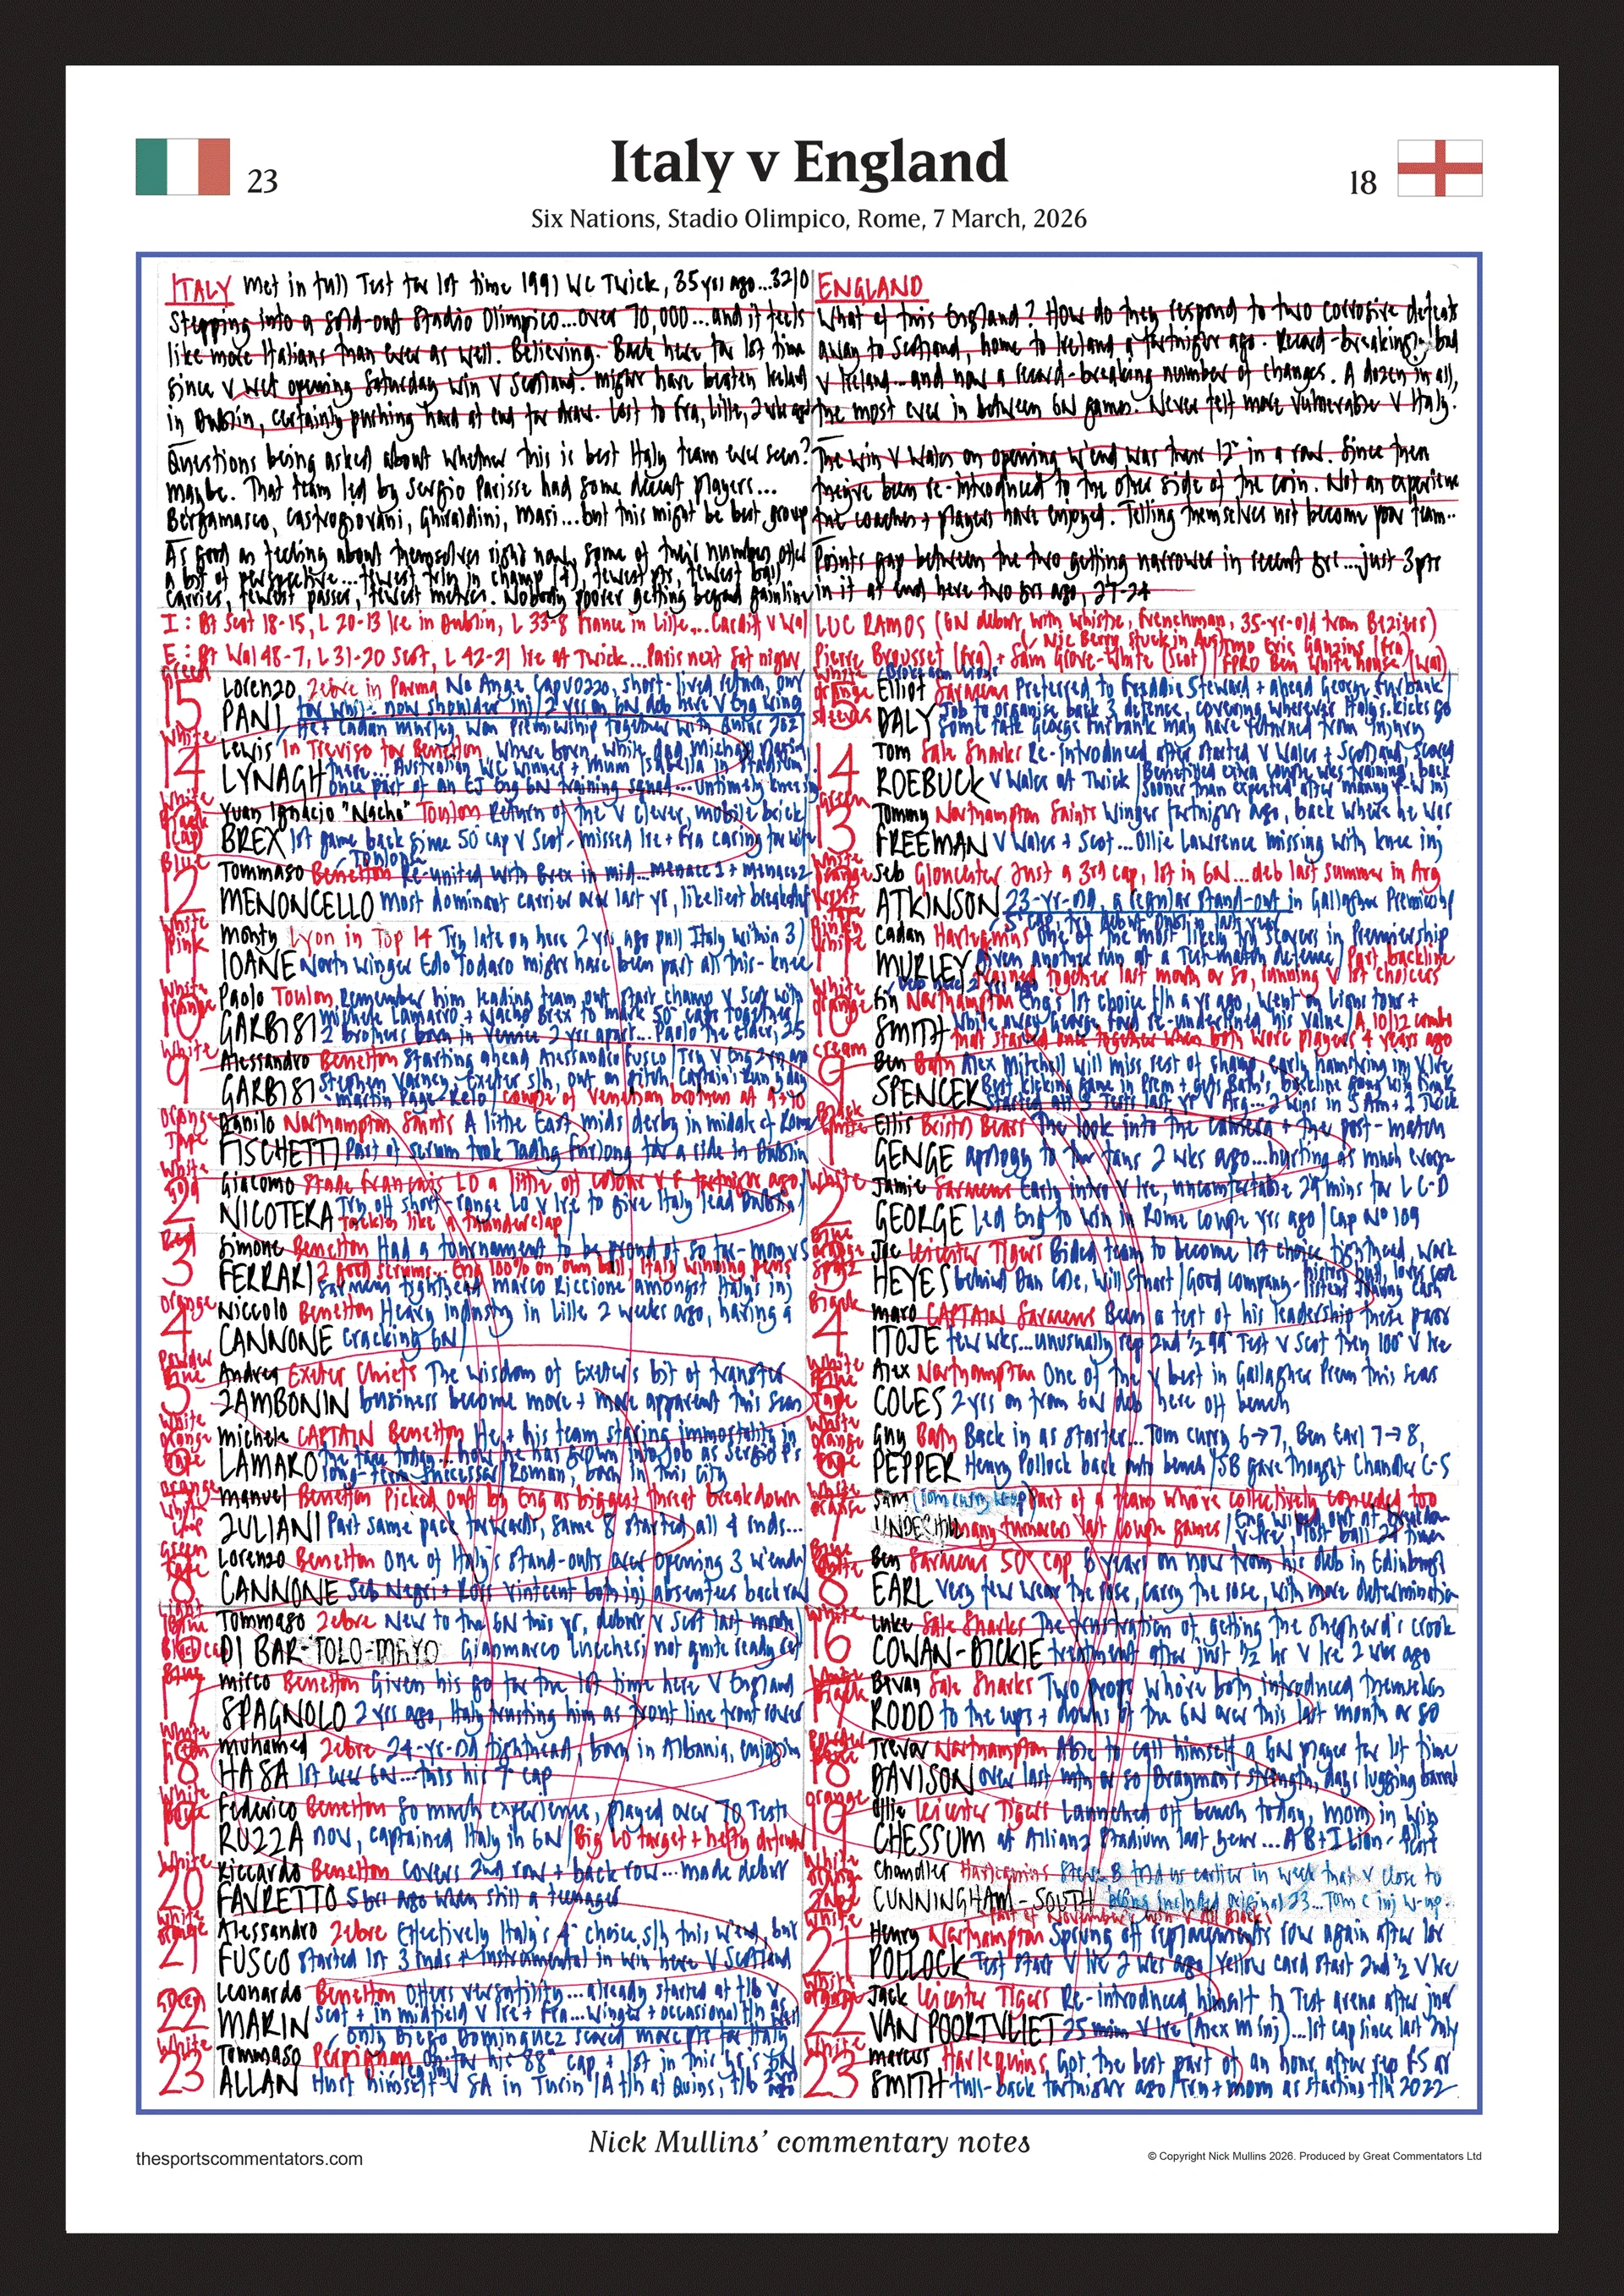 Italy v England
23
18
Six Nations, Stadio Olimpico, Rome, 7 March, 2026
ITALY met in full Test for 1st time 1991 WC Twick, 35 yrs ago...
Stepping into a sold-out Stadio Olimpico...over 70,000...and it feels
like more Italians than ever as well. Believing. Back here for 1st time
since v wet opening Saturday win v Scotland. Might have beaten Ireland
in Dublin, certainly pushing hard at end for draw. Lost to Fra, Lille, 2 wks ago
Questions being asked about whether this is best Italy team ever seen?
Maybe. That team led by Sergio Parisse had some decent players...
Bergamasco, Castrogiovani, Ghiraldini, Masi...but this might be best group
As good as feeling about themselves right now, some of their numbers offer
a bit of perspective...fewest tries in champ (7), fewest pts, fewest ball
carries, fewest passes, fewest metres. Nobody poorer getting beyond gainline
I: Bt Scot 18-15, L 20-13 Ire in Dublin, L 33-8 France in Lille...Cardiff v Wal
E: Bt Wal 48-7, L 31-20 Scot, L 42-21 Ire at Twick...Paris next Sat night
ENGLAND
What of this England? How do they respond to two corrosive defeats
away to Scotland, home to Ireland a fortnight ago. Record-breaking bad
v Ireland...and now a record-breaking number of changes. A dozen in all,
the most ever in between 6N games. Never felt more vulnerable v Italy.
The win v Wales on opening w'end was their 12th in a row. Since then
they've been re-introduced to the other side of the coin. Not an experience
the coaches + players have enjoyed. Telling themselves not become poor team..
Points gap between the two getting narrower in recent yrs...just 3pts
in it at end here two yrs ago, 27-24
LUC RAMOS (6N debut with whistle, Frenchman, 35-yr-old from Beziers)
Nic Berry stuck in Aus
Pierre Brousset (Fra) + Sam Grove-White (Scot) TMO Eric Gauzins (Fra) FPRO Ben Whitehouse (Wal)
15 Lorenzo Zebre in Parma No Ange Capuozzo, short-lived return, out
PANI for whit. now shoulder inj 2 yrs on 6N deb here v Eng wing
He + Cadan Murley, won Premiership together with Quins 2021
14 Lewis In Treviso for Benetton, where born, while dad Michael playing
LYNAGH there... Australian WC winner + mum Isabella in stadium
once part of an EJ Eng 6N training squad...untimely knee inj
13 Yuan Ignacio "Nacho" Toulon Return of the v clever, mobile brick
BREX 1st game back since 50th cap v Scot - missed Ire + Fra caring for wife
12 Tommaso Benetton Toulouse Re-united with Brex in mid...menace 1 + menace 2
MENONCELLO most dominant carrier over last yr, likeliest breakthf
11 Monty Lyon in Top 14 Try late on here 2 yrs ago pull Italy within 3
IOANE North winger Edo Todaro might have been part all this - knee
10 Paolo Toulon Remember him leading team out start champ v Scot with
Michele Lamaro + Nacho Brex to mark 50th caps together
GARBISI 2 brothers born in Venice 2 yrs apart... Paolo the elder, 25
9 Alessandro Benetton Starting ahead Alessandro Fusco Try v Eng 2 yrs ago
GARBISI Stephen Varney, Exeter s/h, out on pitch Captain's Run y'day
Martin Page-Relo couple of Venetian brothers at 9 + 10
1 Danilo Northampton Saints A little East mids derby in middle of Rome
FISCHETTI Part of scrum took Tadhg Furlong for a ride in Dublin
2 Giacomo Stade Francais LO a little off colour v F fortnight ago
NICOTERA Try off short-range LO v Ire to give Italy lead Dublin
Tackles like a thunderclap
3 Simone Benetton Had a tournament to be proud of so far - mom v S
FERRARI 2 good scrums...Eng 100% on own ball, Italy winning pens
Saracens tighthead Marco Riccione amongst Italy's inj
4 Niccolo Benetton Heavy industry in Lille 2 weeks ago, having a
CANNONE cracking 6N
5 Andrea Exeter Chiefs The wisdom of Exeter's bit of transfer
ZAMBONIN business become more + more apparent this seas
6 Michele CAPTAIN Benetton He + his team staring immortality in
the face today...how he has grown into job as Sergio P's
LAMARO long-term successor Roman, born in this city
7 Manuel Benetton Picked out by Eng as biggest threat breakdown
ZULIANI Part same pack forwards, same 8 started all 4 rnds...
8 Lorenzo Benetton One of Italy's stand-outs over opening 3 w'ends
CANNONE Seb Negri + Ross Vintcent both inj absentees back row
16 Tommaso Zebre New to the 6N this yr, debut v Scot last month
DI BARTOLOMEO Gianmarco Lucchesi not quite ready yet
17 Mirco Benetton Given his go for the 1st time here v England
SPAGNOLO 2 yrs ago, Italy trusting him as front line front rower
18 Muhamed Zebre 24-yr-old tighthead, born in Albania, enjoying
HASA 1st ever 6N...this his 7th cap
19 Federico Benetton So much experience, played over 70 Tests
RUZZA now, captained Italy in 6N Big LO target + hefty defender
20 Riccardo Benetton Covers 2nd row + back row...made debut
FAVRETTO 5 yrs ago when still a teenager
21 Alessandro Zebre Effectively Italy's 4th choice s/h this w'end, but
FUSCO started 1st 3 rnds + instrumental in win here v Scotland
22 Leonardo Benetton Offers versatility...already started at f/b v
MARIN Scot + in midfield v Ire + Fra...Winger + occasional f/h as well
only Diego Dominguez scored more pts for Italy
23 Tommaso Perpignan On for his 88th cap + 1st in this yr's 6N
ALLAN Hurt himself v SA in Turin A f/h at Quins, f/b
15 Elliot Saracens Preferred to Freddie Steward + ahead George Furbank
DALY Job to organise back 3 defence, covering wherever Italy's kicks go
Some talk George Furbank may have returned from injury
14 Tom Sale Sharks Re-introduced after started v Wales + Scotland, scored
ROEBUCK v Wales at Twick Benefitted extra couple wks training, back
sooner than expected after inj
13 Tommy Northampton Saints Winger fortnight ago, back where he was
FREEMAN v Wales + Scot...Ollie Lawrence missing with knee inj
12 Seb Gloucester Just a 3rd cap, 1st in 6N...deb last summer in Arg
ATKINSON 23-yr-old, a regular stand-out in Gallagher Premiership
11 Cadan Harlequins One of the most likely try scorers in Premiership
MURLEY Given another run at a Test-match defence Part backline
trained together last month or so, running v 1st choicers
10 Fin Northampton Eng's 1st choice f/h a yr ago, went on Lions tour +
SMITH while away George Ford re-underlined his value A 10/12 combo
that started once together when both Worc players 4 years ago
9 Ben Bath Alex Mitchell will miss rest of champ, early hamstring inj v Ire
SPENCER Best kicking game in Prem + gets Bath's backline going with
Started all 3 Tests last yr v Arg...2 wins in S Am + 1 Twick
1 Ellis Bristol Bears The look into the camera + the post-match
GENGE apology to the fans 2 wks ago...hurting as much everyone
2 Jamie Saracens Early intro v Ire, uncomfortable 29 mins for L C-D
GEORGE Led Eng to win in Rome couple yrs ago Cap No 109
3 Joe Leicester Tigers Bided team to become 1st choice tighthead, work
HEYES behind Dan Cole, Will Stuart Good company - history buff, loves
listens Johnny Cash
4 Maro CAPTAIN Saracens Been a test of his leadership these past
ITOJE few wks...unusually rep 2nd ½ 99th Test v Scot then 100th v Ire
5 Alex Northampton One of the v best in Gallagher Prem this seas
COLES 2 yrs on from 6N deb here off bench
6 Guy Bath Back in as starter...Tom Curry 6→7, Ben Earl 7→8,
PEPPER Henry Pollock back onto bench SB gave thought Chandler C-S
7 Sam Part of a team who've collectively conceded too
UNDERHILL many turnovers last couple games
8 Ben Saracens 50th cap 6 years on now from his deb in Edinburgh
EARL Very few wear the rose, carry the rose, with more determination
16 Luke Sale Sharks The frustration of getting the shepherd's crook
COWAN-DICKIE treatment after just ½ hr v Ire 2 wks ago
17 Bevan Sale Sharks Two props who've both introduced themselves
RODD to the ups + downs of the 6N over this last month or so
18 Trevor Northampton Able to call himself a 6N player for 1st time
DAVISON over last mth or so Drayman's strength, days lugging barrels
19 Ollie Leicester Tigers Launched off bench today, mom in win
CHESSUM at Allianz Stadium last year...A B+I Lion
20 Chandler Harlequins Steve B told us earlier in week that v close to
CUNNINGHAM-SOUTH being included original 23...Tom C inj w-up
Part of November's win v All Blacks
21 Henry Northampton Sprung off replacements row again after 1st
POLLOCK Test start v Ire 2 wks ago Yellow card start 2nd ½ v Ire
22 Jack Leicester Tigers Re-introduced himself to Test arena after just
VAN POORTVLIET 25 mins v Ire (Alex M inj)...1st cap since last July
23 Marcus Harlequins Got the best part of an hour after rep FS at
SMITH full-back fortnight ago Try + mom as starting f/h 2022
Nick Mullins' commentary notes
thesportscommentators.com
© Copyright Nick Mullins 2026. Produced by Great Commentators Ltd